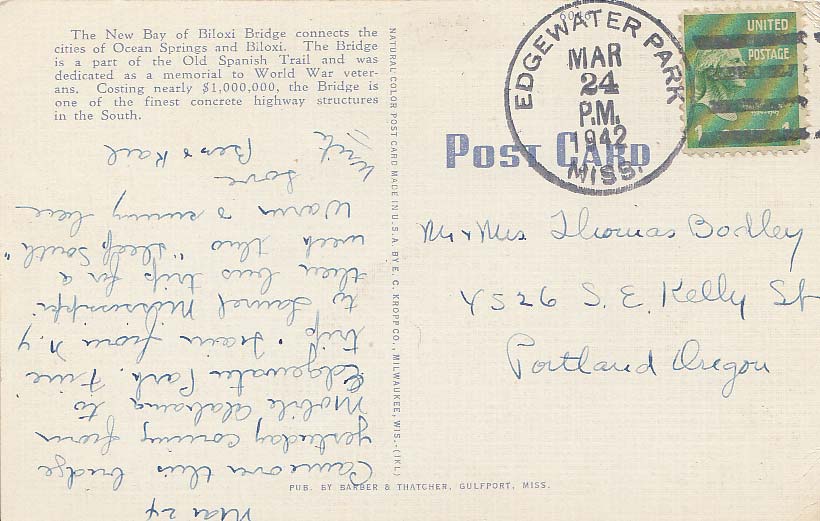 The New Bay of Biloxi Bridge connects the
cities of Ocean Springs and Biloxi. The Bridge
is a part of the Old Spanish Trail and was
dedicated as a memorial to World War veter-
ans. Costing nearly $1,000,000, the Bridge is
one of the finest concrete highway structures
in the South.
NATURAL COLOR POST CARD MADE IN U.S.A. BY E. C. KROPP CO., MILWAUKEE, WIS.-(IKL)
EDGEWATER PARK
MAR
24
P.M.
1942
MISS.
UNITED
POSTAGE
1
POST CARD
Mr & Mrs Thomas Bodley
4526 S. E. Kelly St
Portland Oregon
Mar 24
Came over this bridge
yesterday coming from
Mobile Alabama to
Edgewater Park. Fine
trip. Train from N.Y
to Laurel Mississippi
then bus trip for a
week thro "deep South"
Warm & sunny here
Love
Write
PUB. BY BARBER & THATCHER, GULFPORT, MISS.